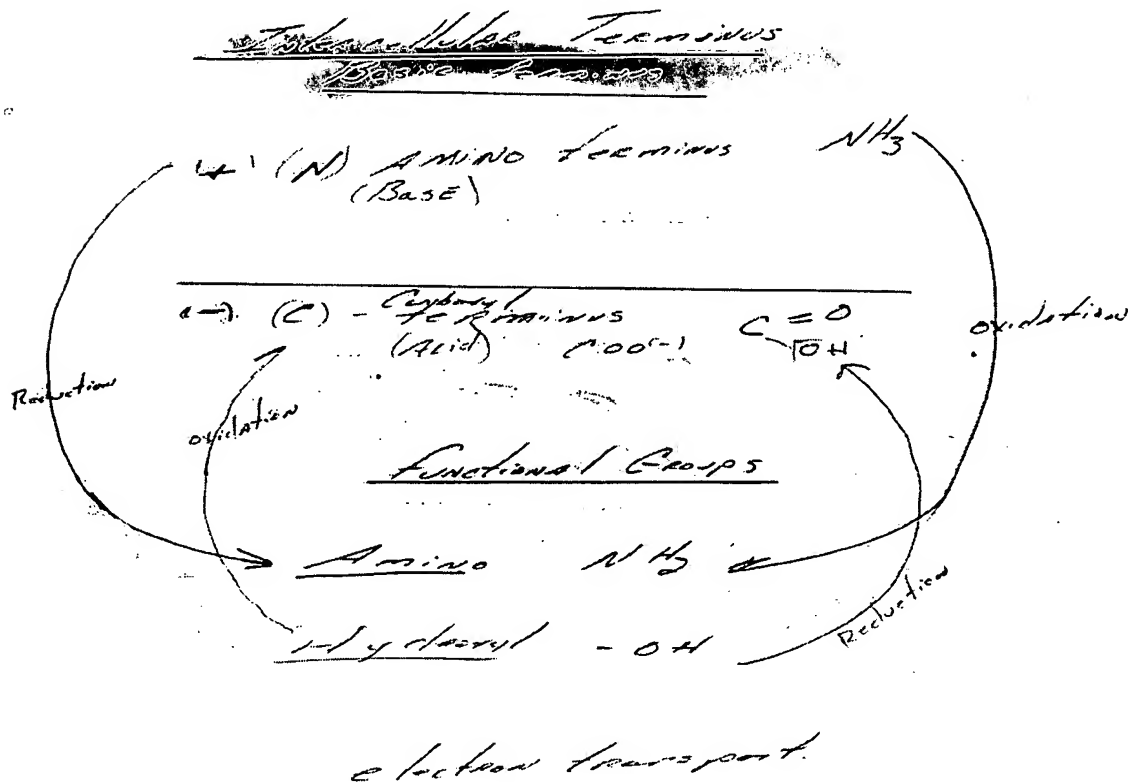 Intercellular Terminus
Basic terminus
(N) Amino terminus NH3
(Base)
(C) - Carboxyl terminus C=O
(Acid) COO(-) OH
Reduction
oxidation
oxidation
Functional Groups
Amino NH3
Hydroxyl - OH
Reduction
electron transport.